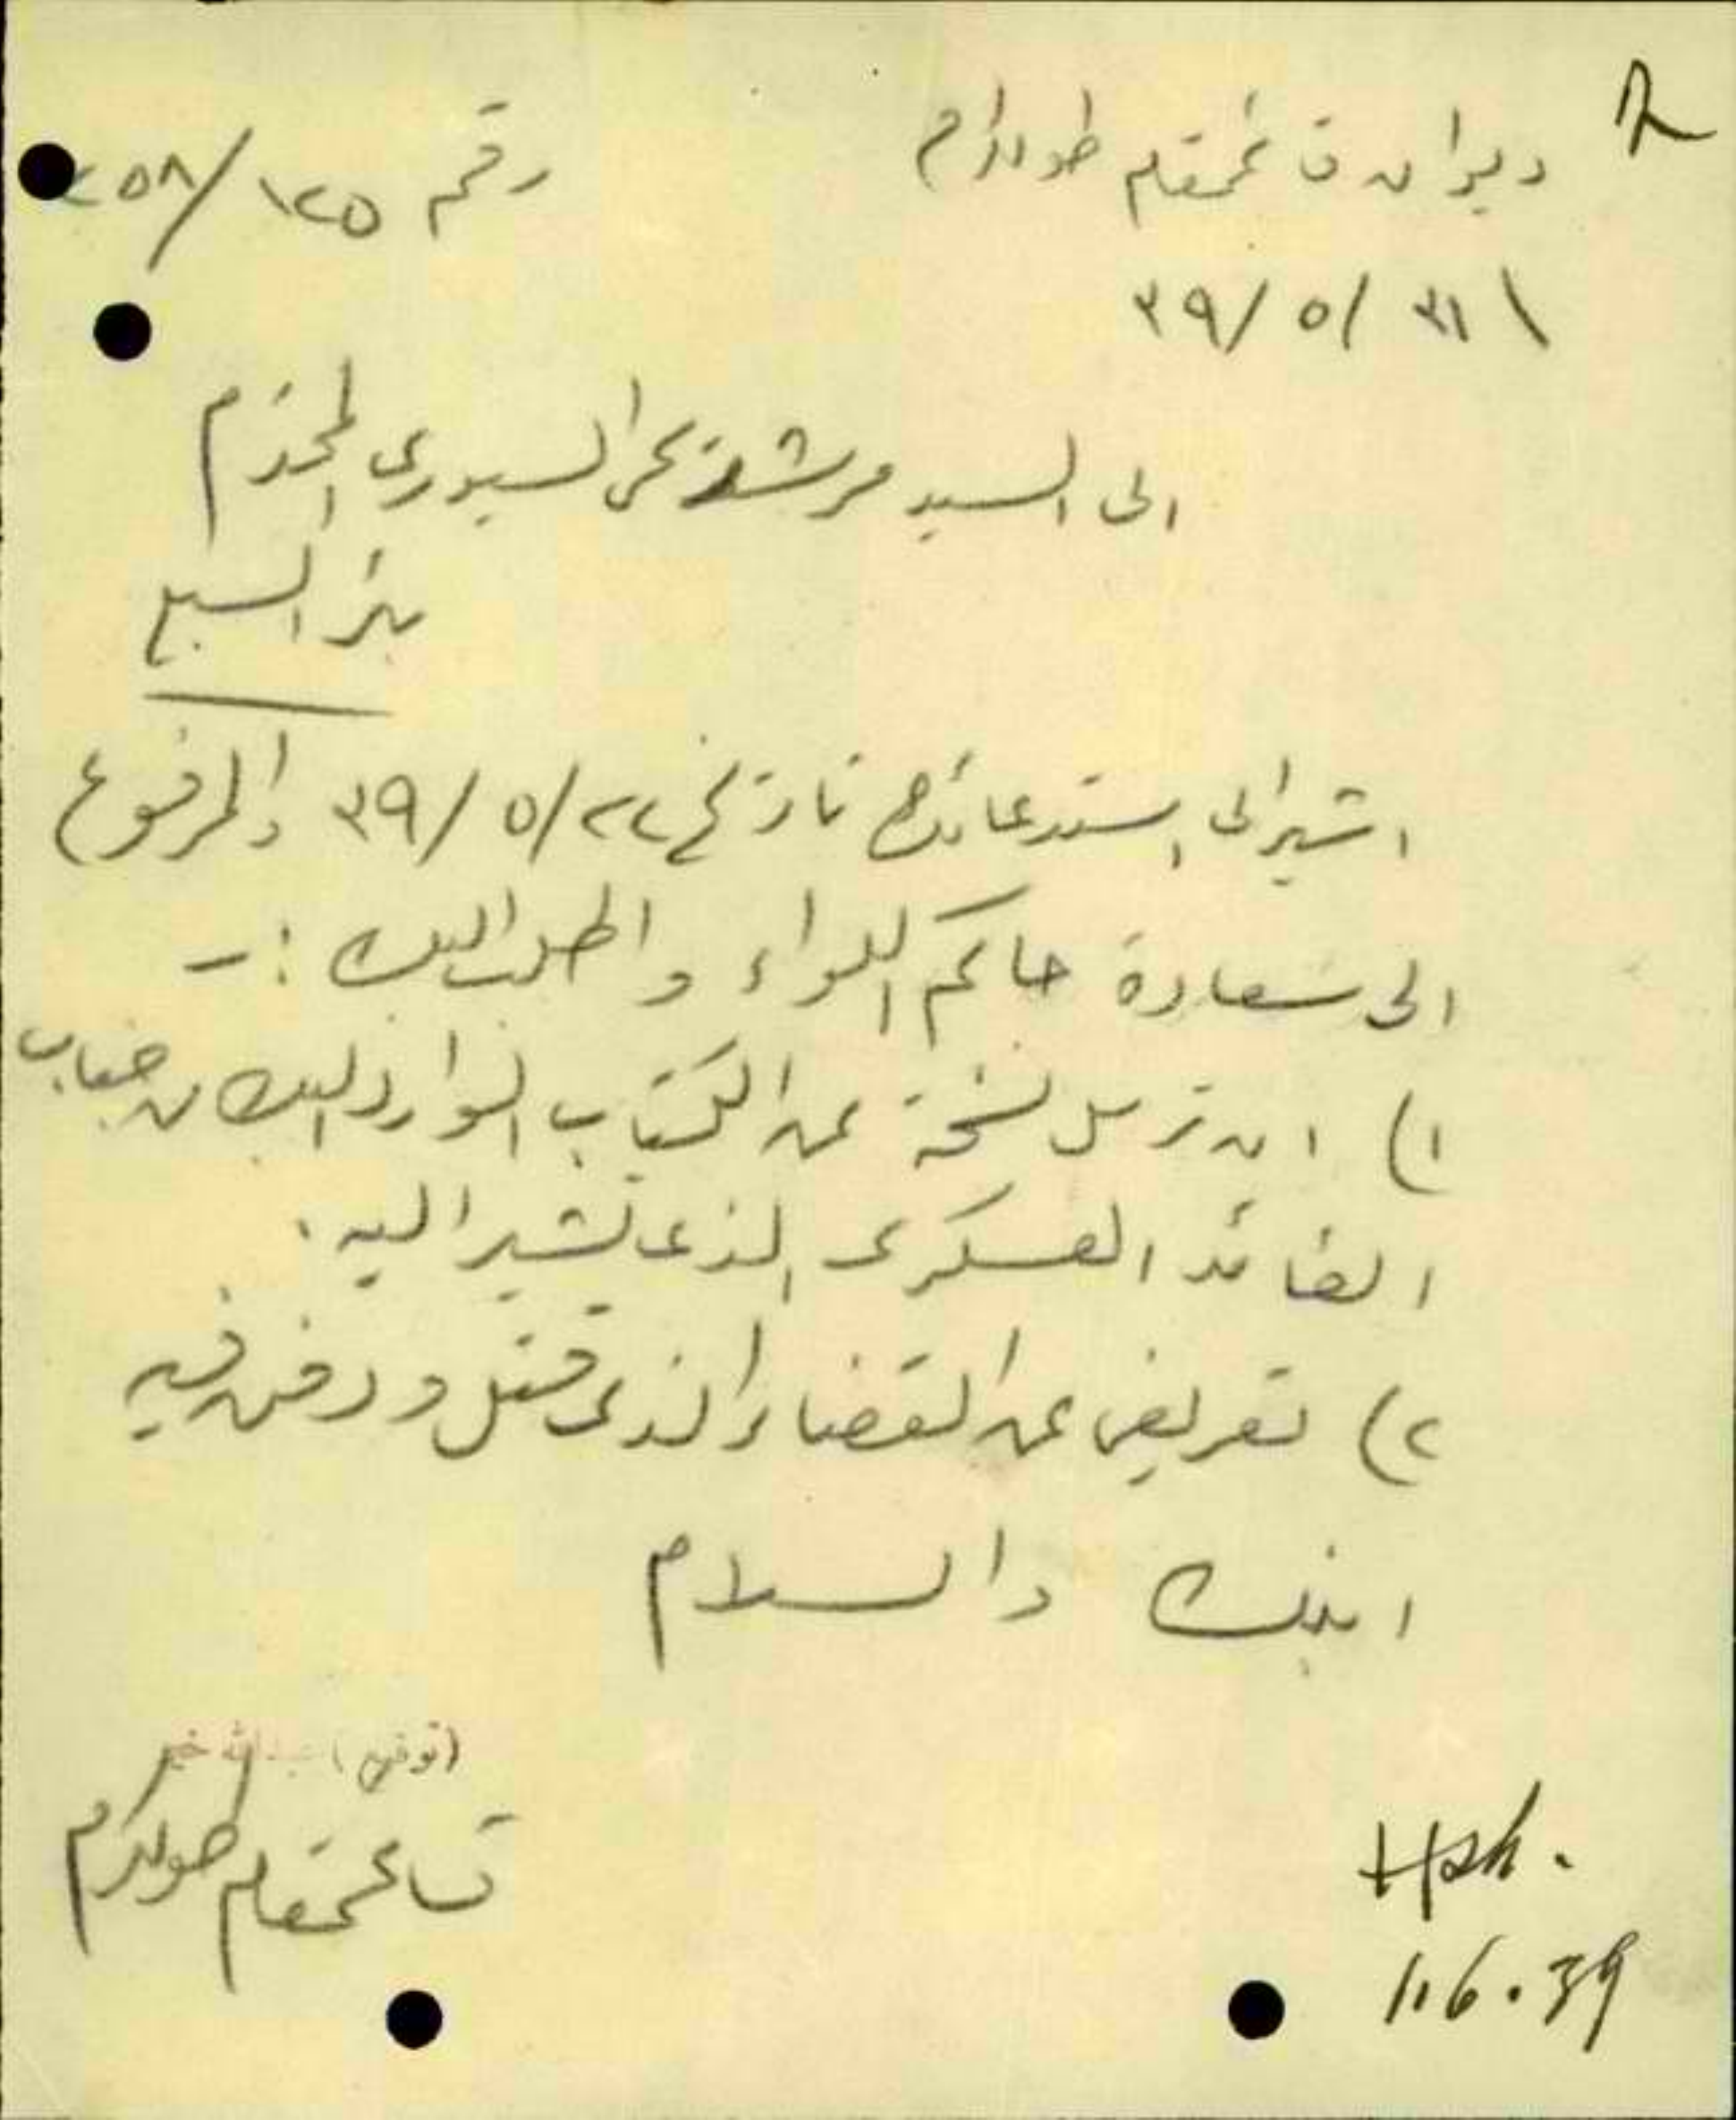 ديوان قائمقام طولكرم
رقم ١٢٥/٢٥٨
٣١/٥/٣٩
الى السيد مرشد السيوري المحترم
بئر السبع
اشير الى استدعائك تاريخ ٢٢/٥/٣٩ والمرفوع
الى سعادة حاكم اللواء واطلب اليك :-
١) ان ترسل نسخة عن الكتاب الوارد اليك من جناب
القائد العسكري الذي تشير اليه .
٢) تعريف عن القضاء الذي قتل ودفن فيه
ابنك والسلام
(توقيع) خير
قائمقام طولكرم
1.6.39